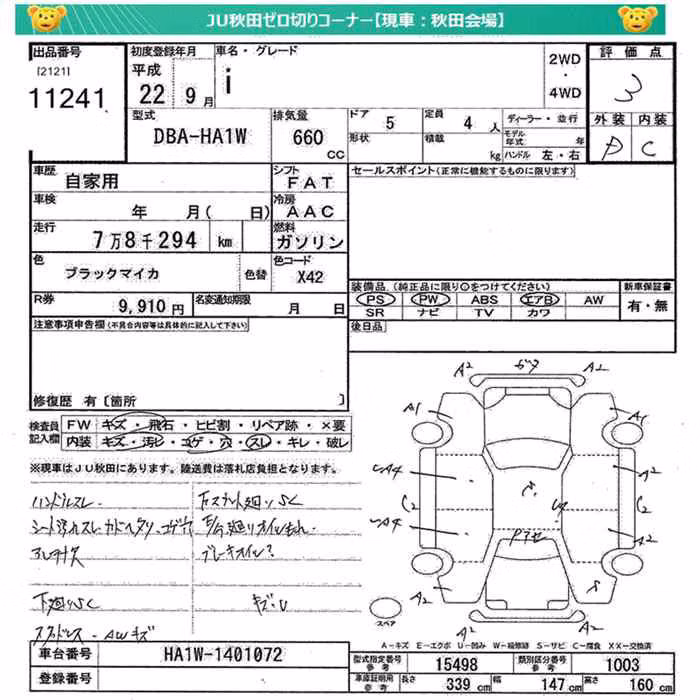 JU秋田ゼロ切りコーナー【現車：秋田会場】
出品番号
[2121]
11241
初度登録年月
平成
22 9月
車名・グレード
i
2WD
・
4WD
評価点
3
型式
DBA-HA1W
排気量
660
CC
ドア
5
定員
4 人
形状
積載
kg
ディーラー・並行
モデル年式 年
ハンドル 左・右
外装 内装
D C
車歴
自家用
シフト
FAT
セールスポイント(正常に機能するものに限ります)
車検
年 月( 日)
冷房
AAC
走行
7万8千294 km
燃料
ガソリン
色
ブラックマイカ
色替
色コード
X42
装備品(純正品に限り○をつけてください)
新車保証書
PS PW ABS エアB AW
有・無
SR ナビ TV カワ
R券
9,910 円
名変通知期限
月 日
注意事項申告欄(不具合内容等は具体的に記入して下さい)
後日品
修復歴 有〔箇所 〕
検査員記入欄
FW キズ・飛石・ヒビ割・リペア跡・×要
内装 キズ・汚レ・コゲ・穴・スレ・キレ・破レ
※現車はJU秋田にあります。陸送費は落札店負担となります。
ハンドルスレ
下廻りSC
A2 ガタ A2
A1 A1
A2
C2 C2
A2
A2 A2
スペア
A－キズ E－エクボ U－凹み W－板修跡 S－サビ C－腐食 XX－交換済
車台番号
HA1W-1401072
登録番号
型式指定番号
15498
類別区分番号
1003
車庫証明用参考
長さ 339 cm
幅 147 cm
高さ 160 cm